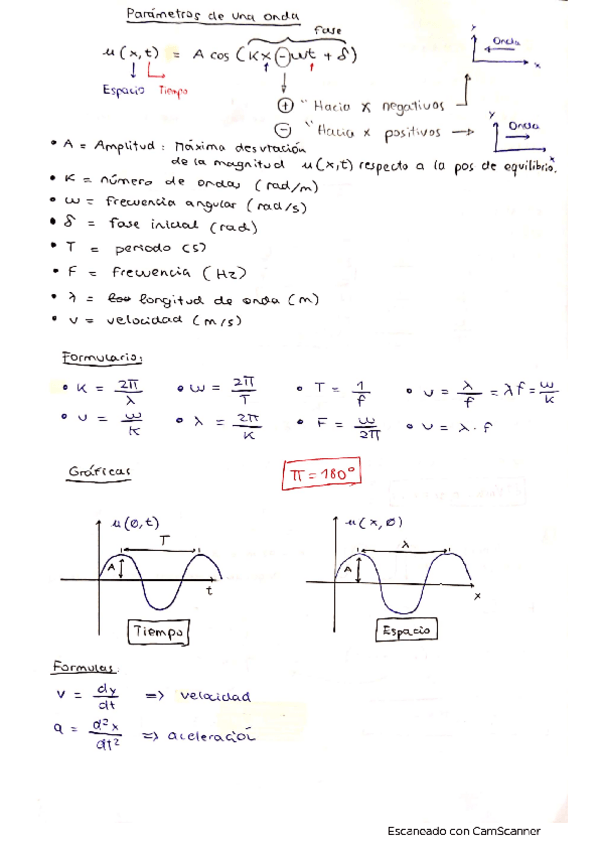 Parámetros de una onda
fase
u(x,t) = A cos (Kx - ωt + δ)
Espacio Tiempo
y Onda x
+ "Hacia x negativos
- "Hacia x positivos →
y Onda x
• A = Amplitud: Máxima desviación
de la magnitud u(x,t) respecto a la pos de equilibrio.
• K = número de ondas (rad/m)
• ω = frecuencia angular (rad/s)
• δ = fase inicial (rad)
• T = periodo (s)
• F = frecuencia (Hz)
• λ = longitud de onda (m)
• v = velocidad (m/s)
Formulario:
• K = 2π/λ • ω = 2π/T • T = 1/f • v = λ/f = λf = ω/k
• v = ω/K • λ = 2π/K • F = ω/2π • v = λ·f
Gráficas
π = 180º
u(0,t) T A t
Tiempo
u(x,0) λ A x
Espacio
Formulas:
v = dy/dt => velocidad
a = d²x/dt² => aceleración
Escaneado con CamScanner